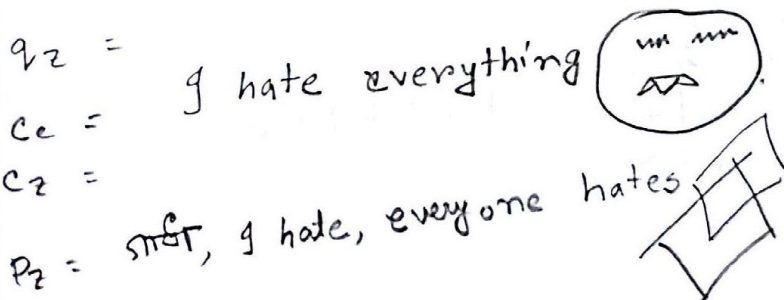 qz =
I hate everything
Ce =
Cz =
Pz = , I hate, everyone hates